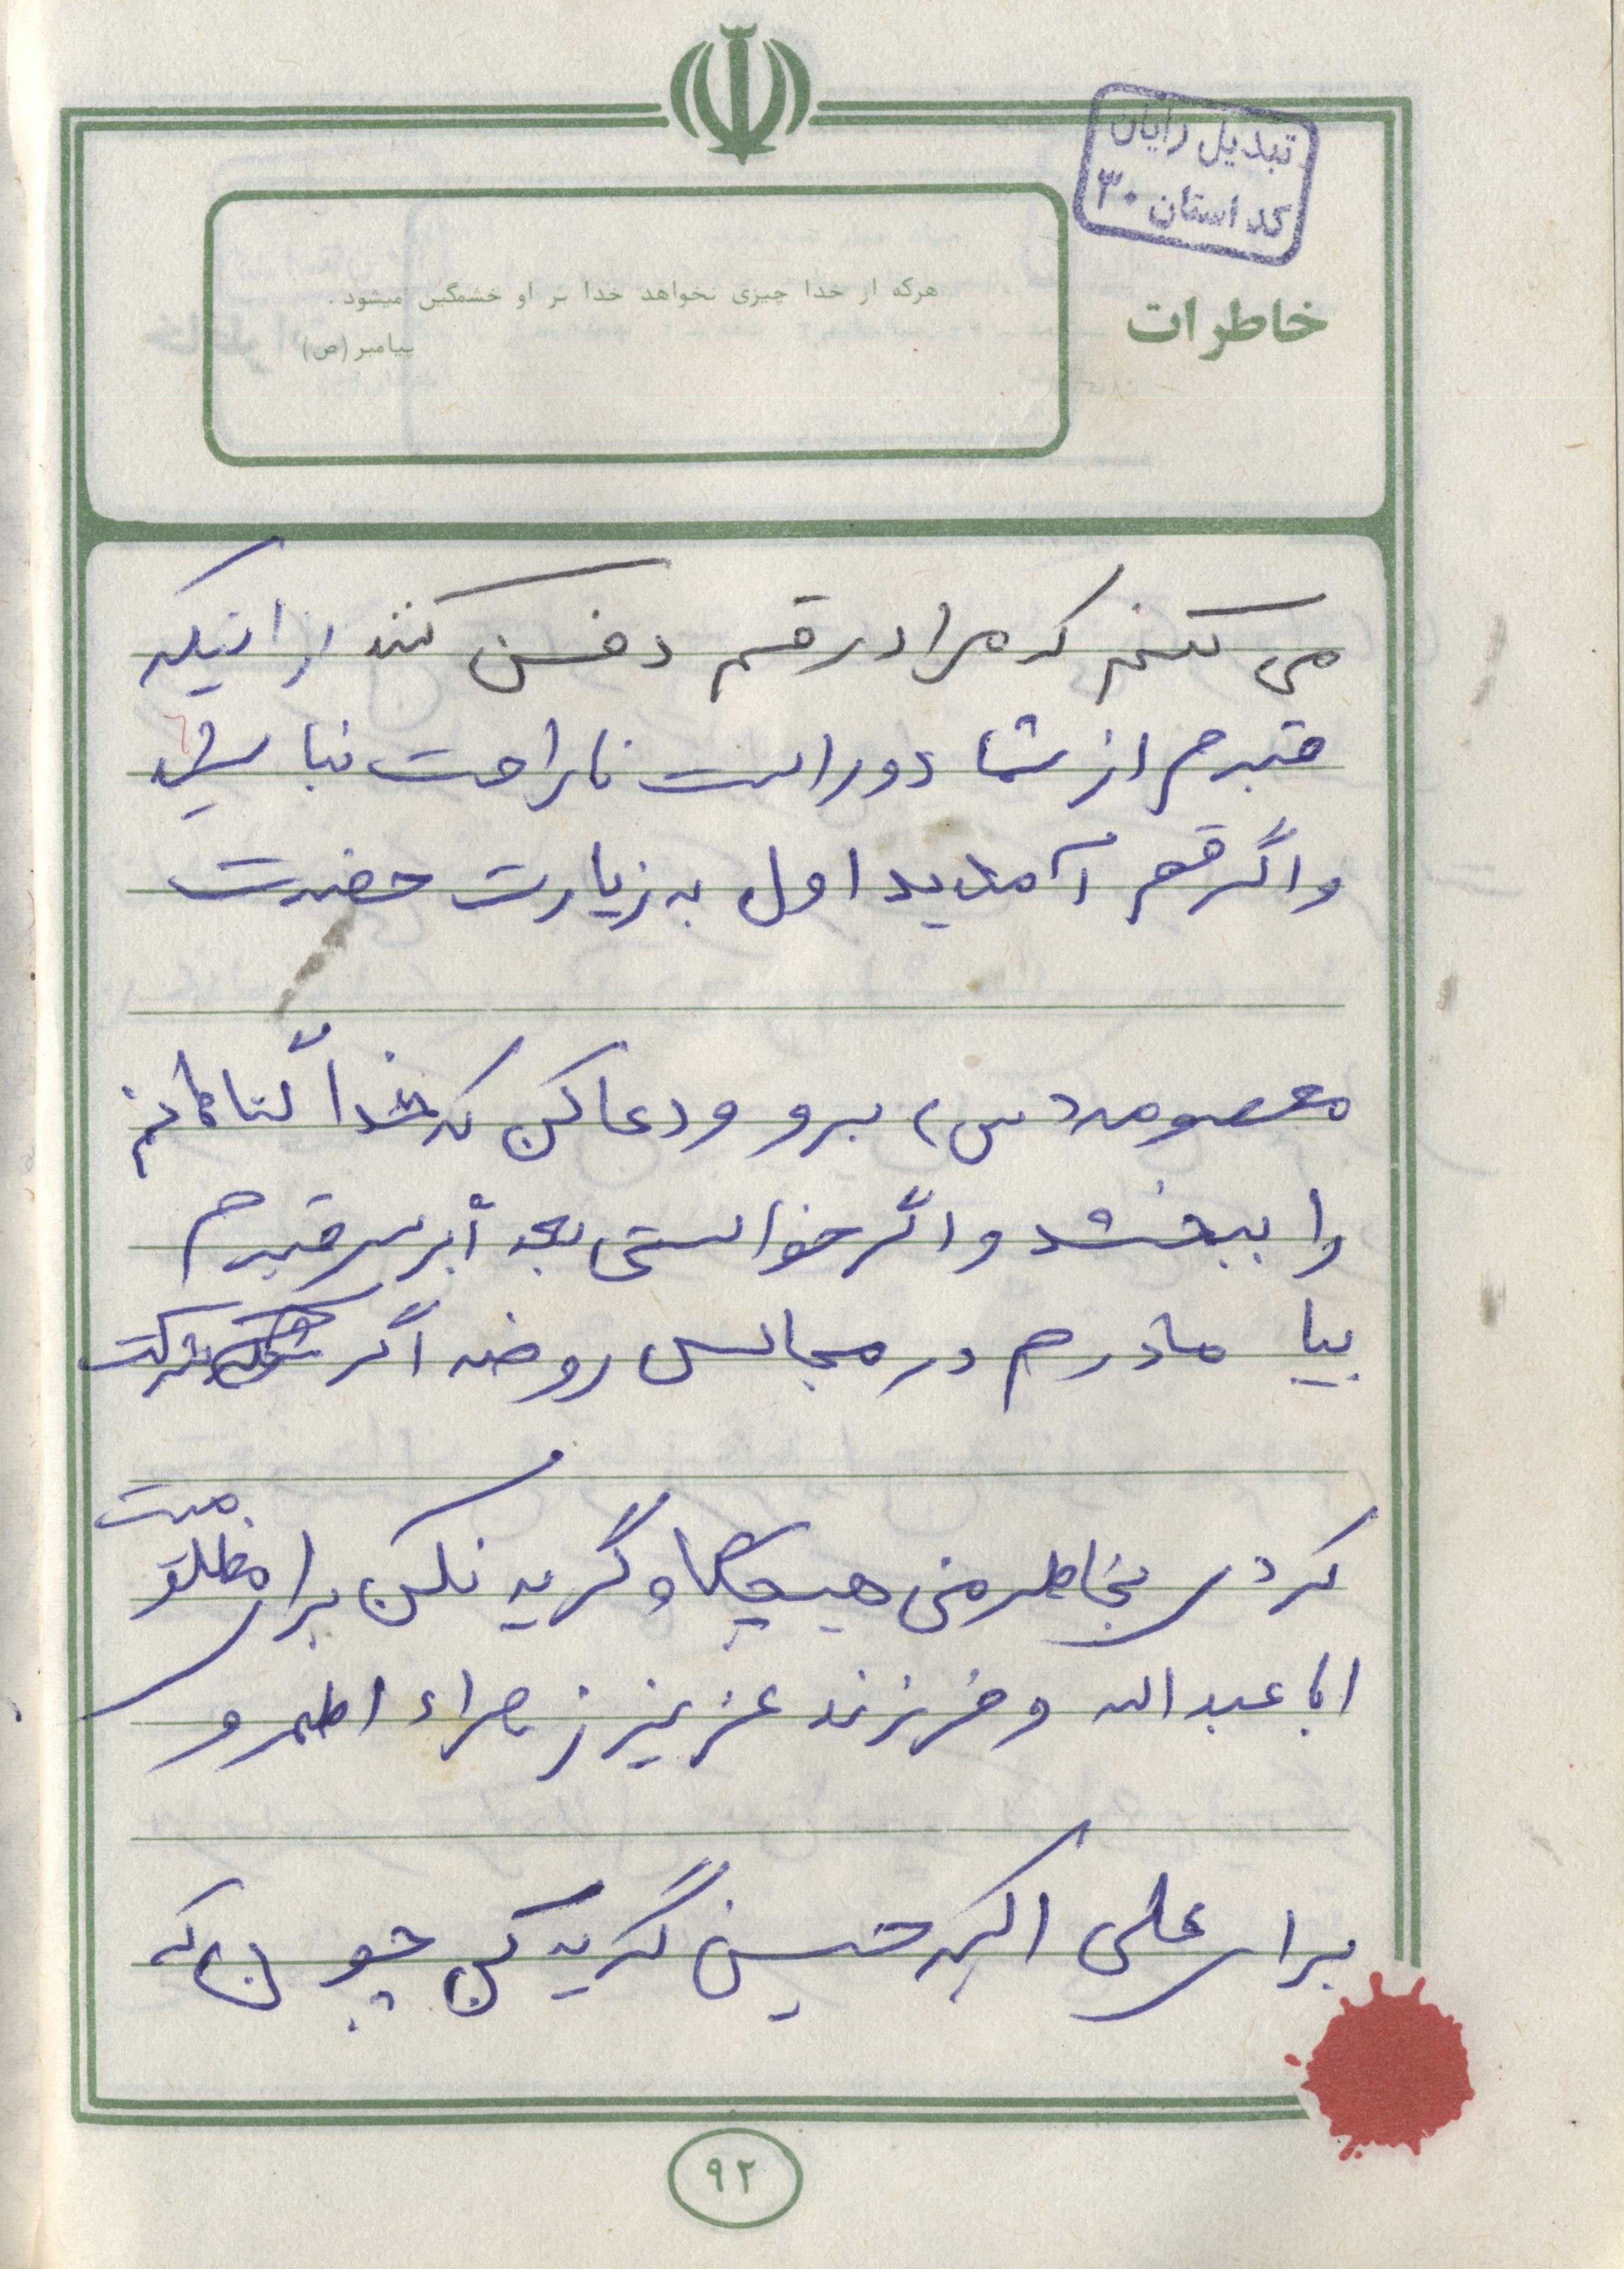 تبدیل رایان
کد استان ۳۰
خاطرات
هرکه از خدا چیزی نخواهد خدا بر او خشمگین میشود.
پیامبر (ص)
می کنم که مرا در قم دفن کنند از اینکه
قبرم از شما دور است ناراحت نباشید
و اگر قم آمدید اول به زیارت حضرت
معصومه (س) برو و دعا کن که خدا گناهانم
را ببخشد و اگر خواستی بعداً بر سر قبرم
بیا مادرم در مجالس روضه اگر شرکت
کردی بخاطر من هیچگاه گریه نکن برای مظلومیت
ابا عبدالله و فرزند عزیز زهراء اطهر و
برای علی اکبر حسین گریه کن چون که
۹۲